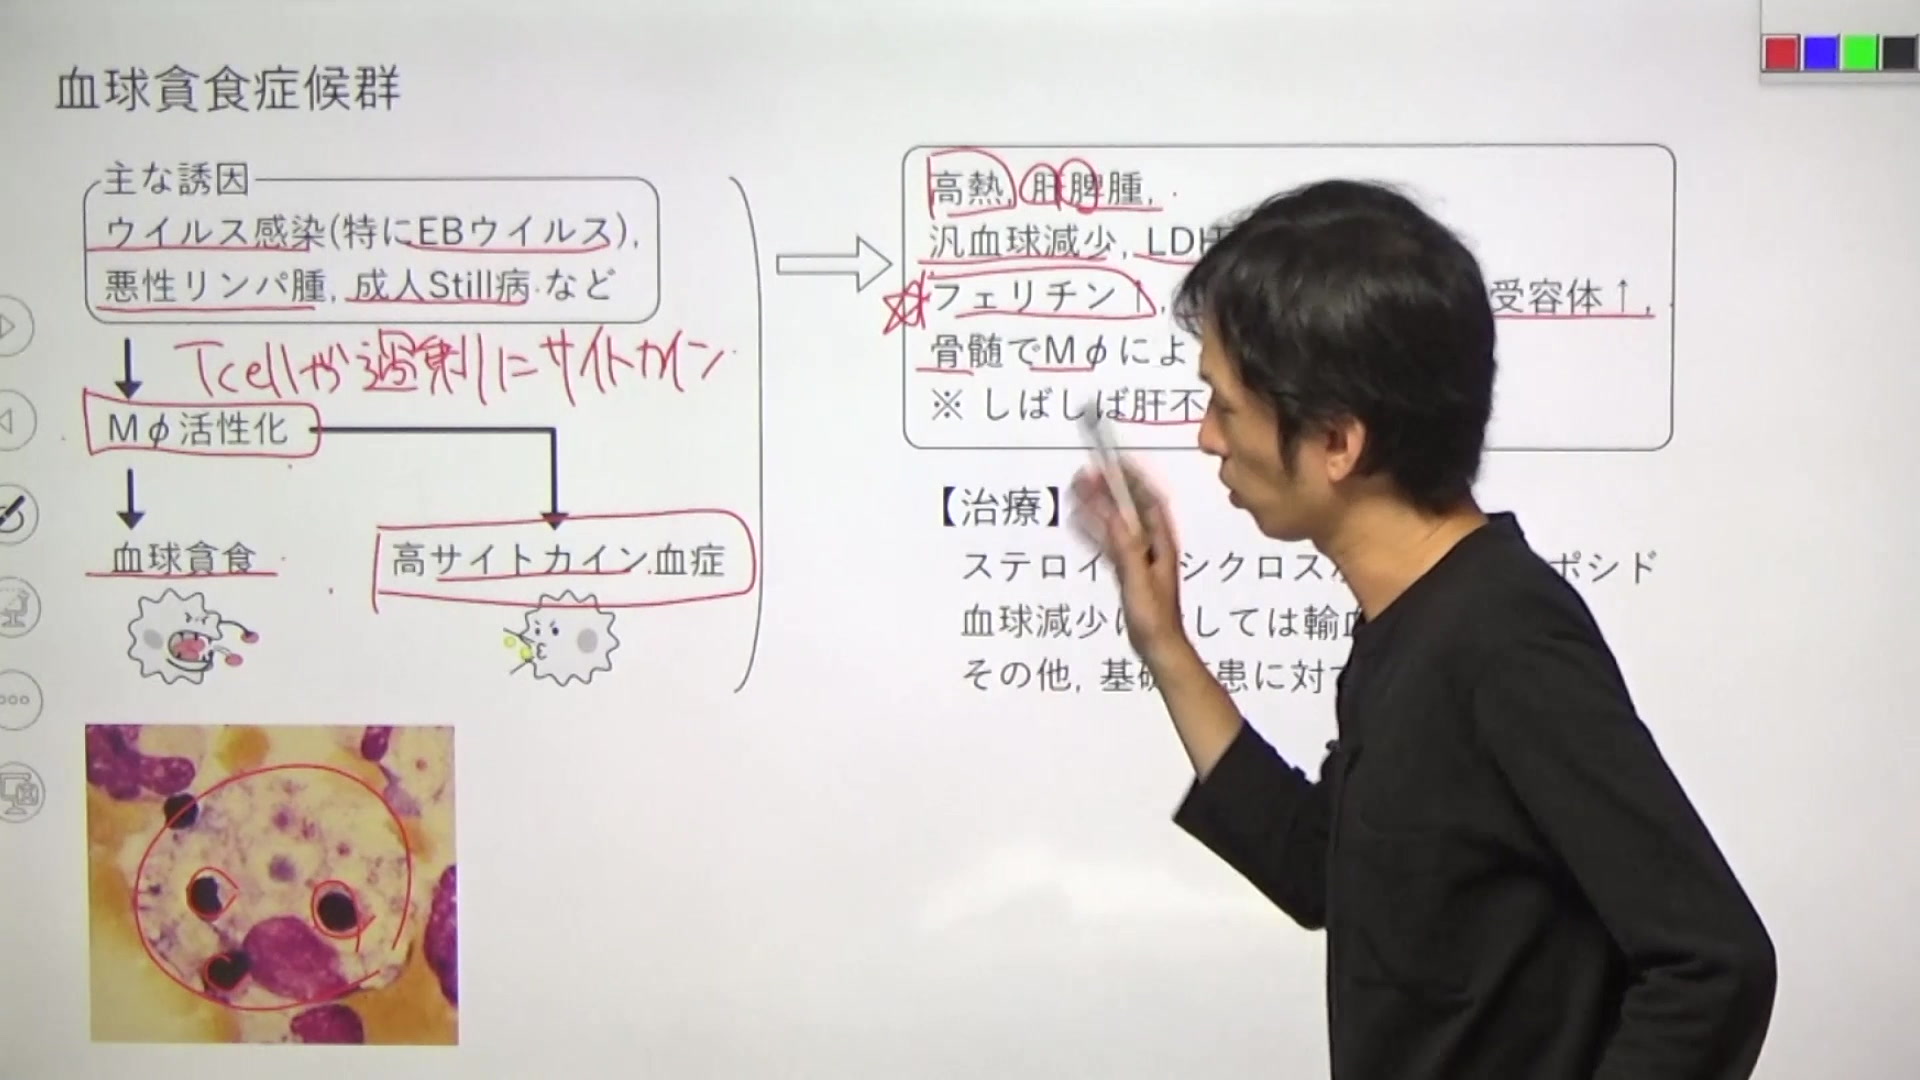 血球貪食症候群
主な誘因
ウイルス感染(特にEBウイルス),
悪性リンパ腫, 成人Still病 など
Tcellが過剰にサイトカイン
Mφ活性化
血球貪食
高サイトカイン血症
高熱, 肝脾腫,
汎血球減少, LDH
フェリチン↑, 受容体↑,
骨髄でMφによ
※ しばしば肝不
【治療】
ステロイ シクロス ポシド
血球減少に しては輸血
その他, 基礎 患に対